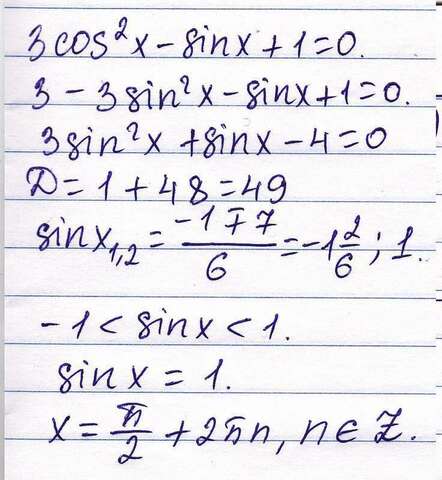 3cos²x - sinx + 1 = 0.
3 - 3sin²x - sinx + 1 = 0.
3sin²x + sinx - 4 = 0
D = 1 + 48 = 49
sinx₁,₂ = (-1 ∓ 7)/6 = -1 2/6; 1.
-1 < sinx < 1.
sinx = 1.
x = π/2 + 2πn, n ∈ Z.